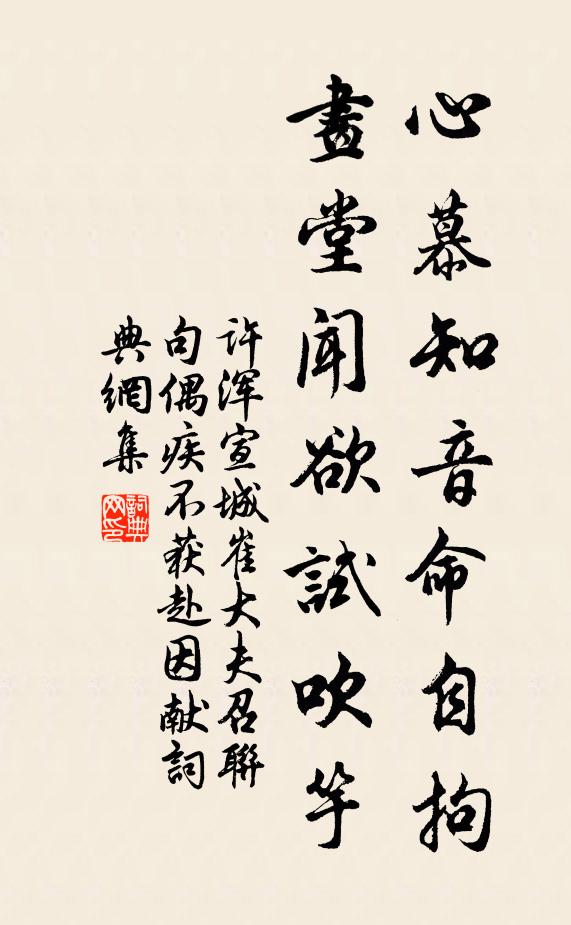 心慕知音命自拘
畫堂聞欲試吹竽
许浑宣城崔大夫召聯
句偶疾不获赴因献詞
典網集
詞典網印